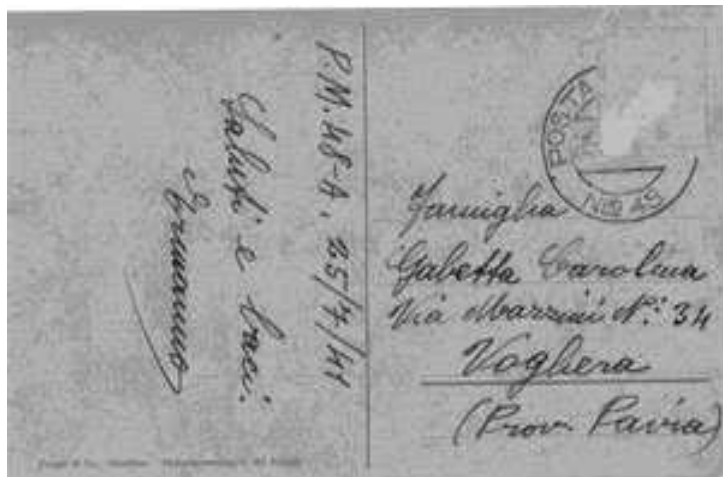 P.M. 48-A, 25/7/41
Saluti e baci.
Ermanno
POSTA
N(B) 48
Famiglia
Gabetta Carolina
Via Mazzini N.: 34
Voghera
(Prov. Pavia)